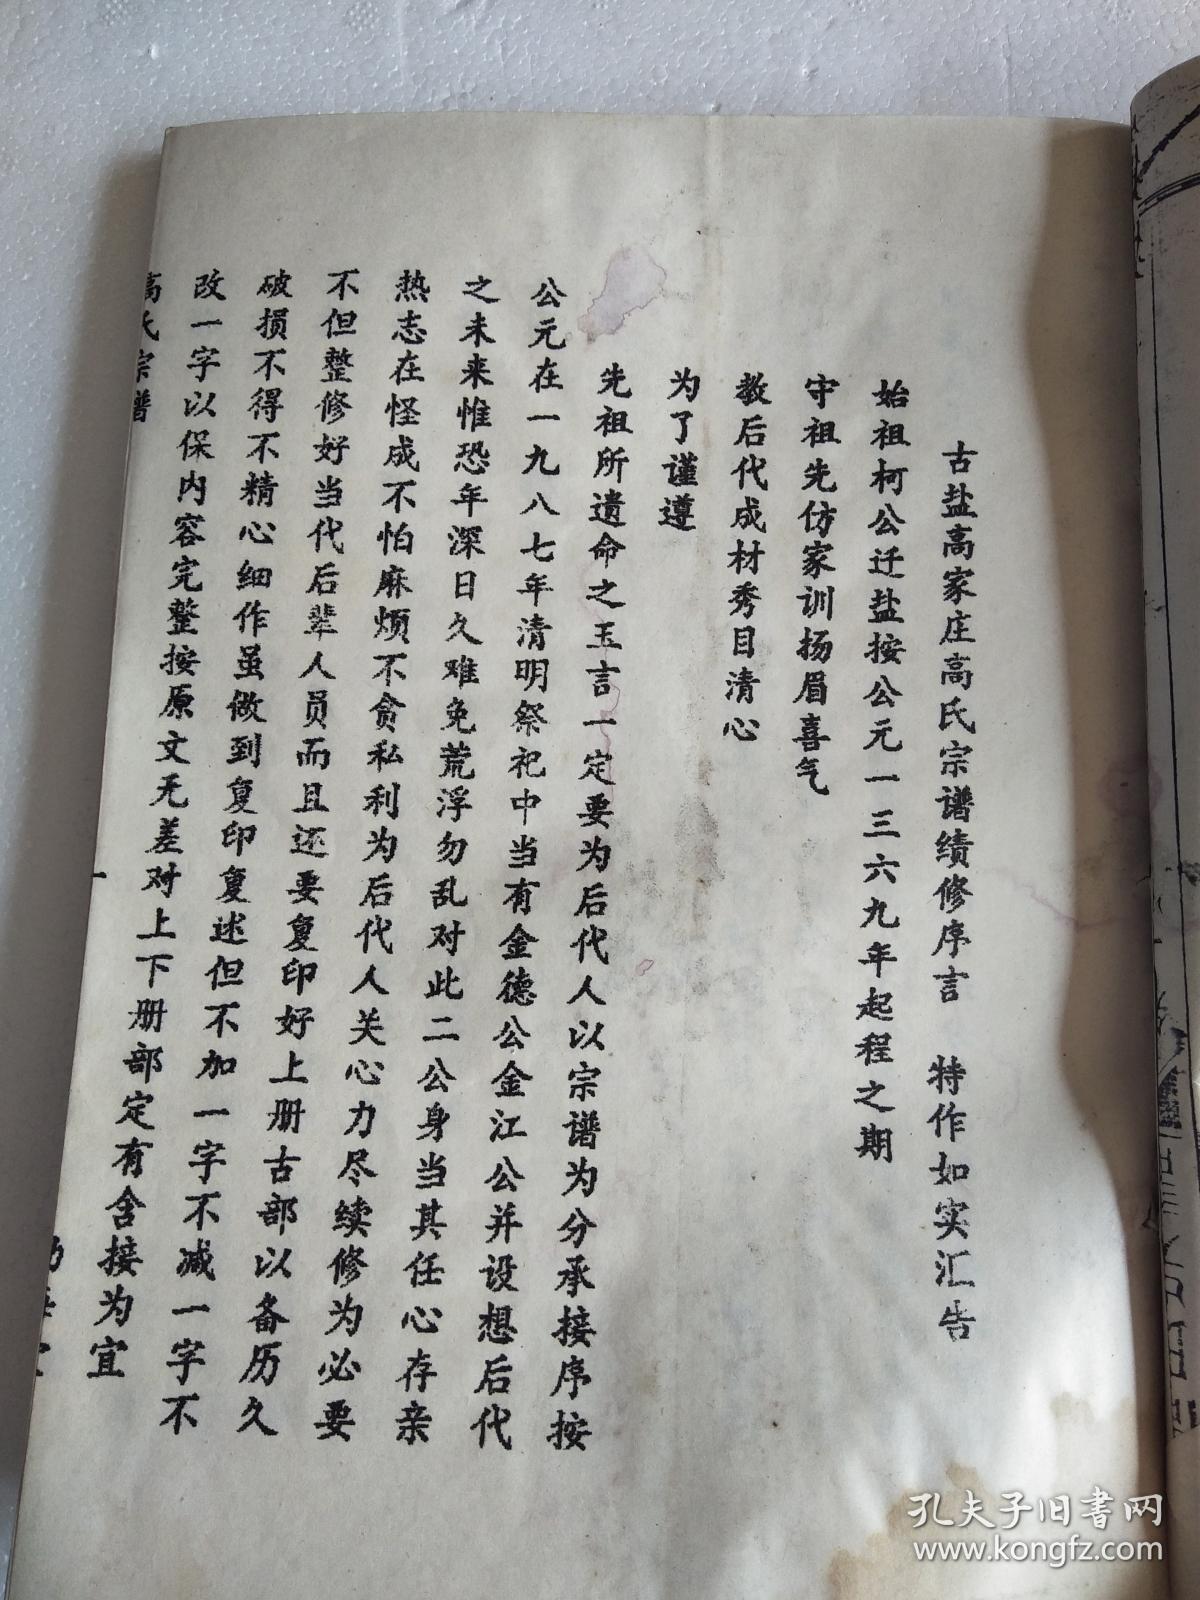 古盐高家庄高氏宗谱绩修序言 特作如实汇告
始祖柯公迁盐按公元一三六九年起程之期
守祖先仿家训扬眉喜气
教后代成材秀目清心
为了谨遵
先祖所遗命之玉言一定要为后代人以宗谱为分承接序按
公元在一九八七年清明祭祀中当有金德公金江公并设想后代
之未来惟恐年深日久难免荒浮勿乱对此二公身当其任心存亲
热志在怪成不怕麻烦不贪私利为后代人关心力尽续修为必要
不但整修好当代后辈人员而且还要复印好上册古部以备历久
破损不得不精心细作虽做到复印复述但不加一字不减一字不
改一字以保内容完整按原文无差对上下册部定有含接为宜
高氏宗谱
一
孔夫子旧书网
www.kongfz.com